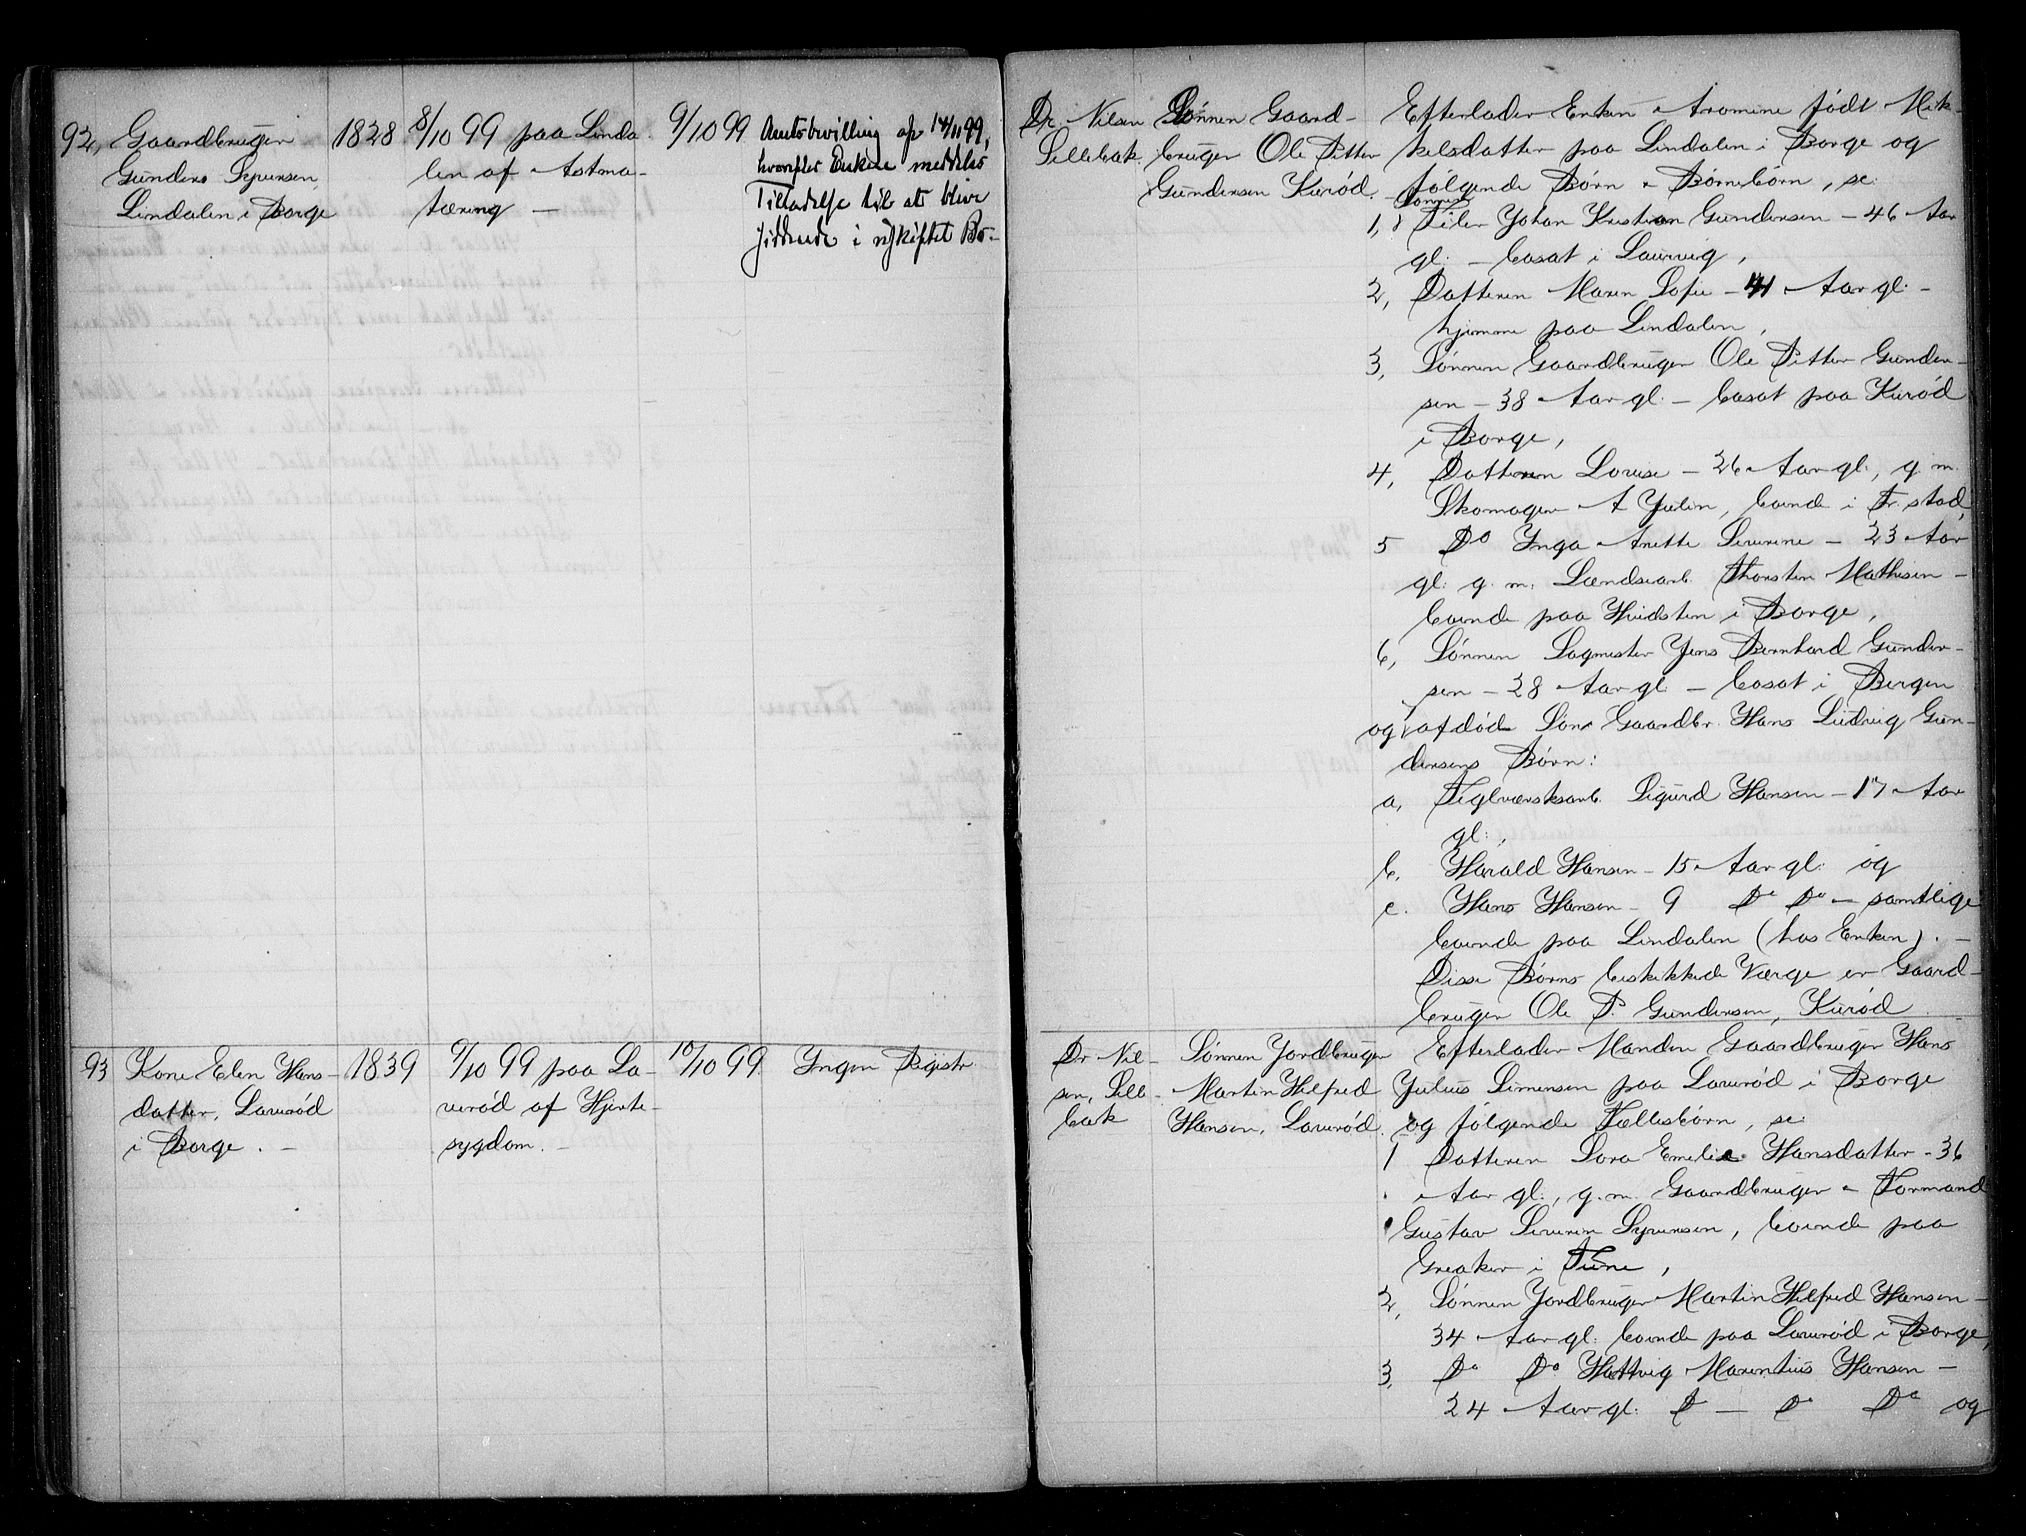 92, Gaardbruger
Gunders Syversen,
Lindalen i Borge
1828
8/10 99 paa Linda-
len af Astma-
tæring —
9/10 99
Amtsbevilling af 14/11 99,
hvorefter Enken meddeles
Tilladelse til at blive
siddende i uskiftet Bo.-
Dr. Nilsen
Sillebæk
Sønnen Gaard-
bruger Ole Petter
Gundersen Kurød.
Efterlader Enken Aromine født Mik-
kelsdatter paa Lindalen i Borge og
følgende Børn & Børnebørn, se:
Sønnen
1, Johan Kristian Gundersen – 46 Aar
gl. – bosat i Laurvig,
2, Datteren Maren Sofie – 41 Aar gl. –
hjemme paa Lindalen,
3, Sønnen Gaardbruger Ole Petter Gunder-
sen – 38 Aar gl. – bosat paa Kurød
i Borge,
4, Datteren Lovise – 26 Aar gl., g. m.
Skomager A Julin, boende i Fr.stad,
5 Do Inga Anette Severine – 23 Aar
gl. g. m. Lændsearb. Thorsten Mathisen –
boende paa Hvidsten i Borge,
6, Sønnen Sagmester Jens Bernhard Gunder-
sen – 28 Aar gl – bosat i Bergen
og afdøde Søn Gaardbr. Hans Ludvig Gun-
dersens Børn:
a, Teglværksarb. Sigurd Hansen – 17 Aar
gl.,
b. Harald Hansen – 15 Aar gl. og
c. Hans Hansen – 9 Do Do – samtlige
boende paa Lindalen (hos Enken). –
Disse Børns beskikkede Værge er Gaard-
bruger Ole P. Gundersen, Kurød
93 Kone Elen Hans-
datter, Laverød
i Borge. –
1839
9/10 99 paa La-
verød af Hjerte-
sygdom. –
10/10 99.
Ingen Registr
Dr Nil-
sen, Sille-
bæk
Sønnen Jordbruger
Martin Hilfred
Hansen, Laverød.
Efterlader Manden Gaardbruger Hans
Julius Simensen paa Laverød i Borge
og følgende Fællesbørn, se:
1 Datteren Lora Emelie Hansdatter – 36
Aar gl., g. m. Gaardbruger & Formand
Gustav Severin Syversen, boende paa
Greaker i Tune,
2, Sønnen Jordbruger Martin Hilfred Hansen –
34 Aar gl. boende paa Laverød i Borge,
3, Do Do Hartvig Marentius Hansen –
24 Aar gl. D – Do Do og